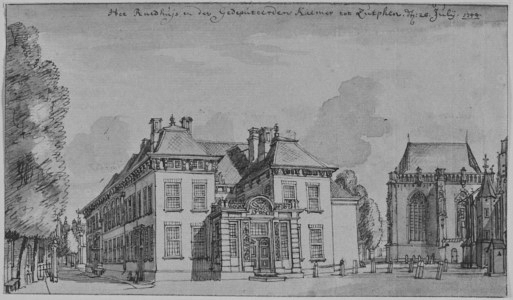 Het Raedhuys en der Gedeputeerden Kaemer tot Zutphen. 20 July. 1744.